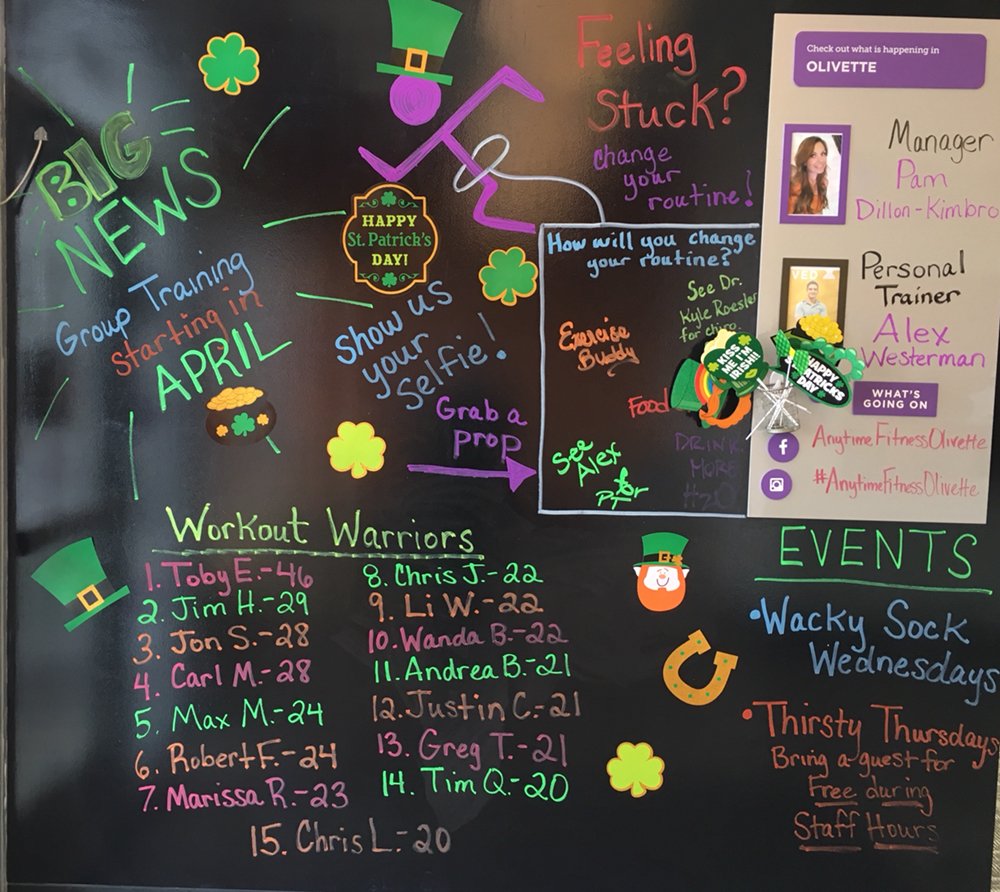 BIG
NEWS
Group Training
starting in
APRIL
HAPPY
St. Patrick's
DAY!
show us
your
selfie!
Grab a
prop
Feeling
Stuck?
change
your
routine!
How will you change
your routine?
See Dr.
Kyle Roesler
for chiro.
Exercise
Buddy
Food
See
Alex
for
PT
DRINK
MORE
H2O
KISS
ME I'M
IRISH!!
HAPPY
ST PATRICKS
DAY
Check out what is happening in
OLIVETTE
Manager
Pam
Dillon-Kimbro
Personal
Trainer
Alex
Westerman
WHAT'S
GOING ON
AnytimeFitnessOlivette
#AnytimeFitnessOlivette
Workout Warriors
1. Toby E.-46
2. Jim H.-29
3. Jon S.-28
4. Carl M.-28
5. Max M.-24
6. Robert F.-24
7. Marissa R.-23
8. Chris J.-22
9. Li W.-22
10. Wanda B.-22
11. Andrea B.-21
12. Justin C.-21
13. Greg T.-21
14. Tim Q.-20
15. Chris L.-20
EVENTS
•Wacky Sock
Wednesdays
•Thirsty Thursdays
Bring a guest for
Free during
Staff Hours